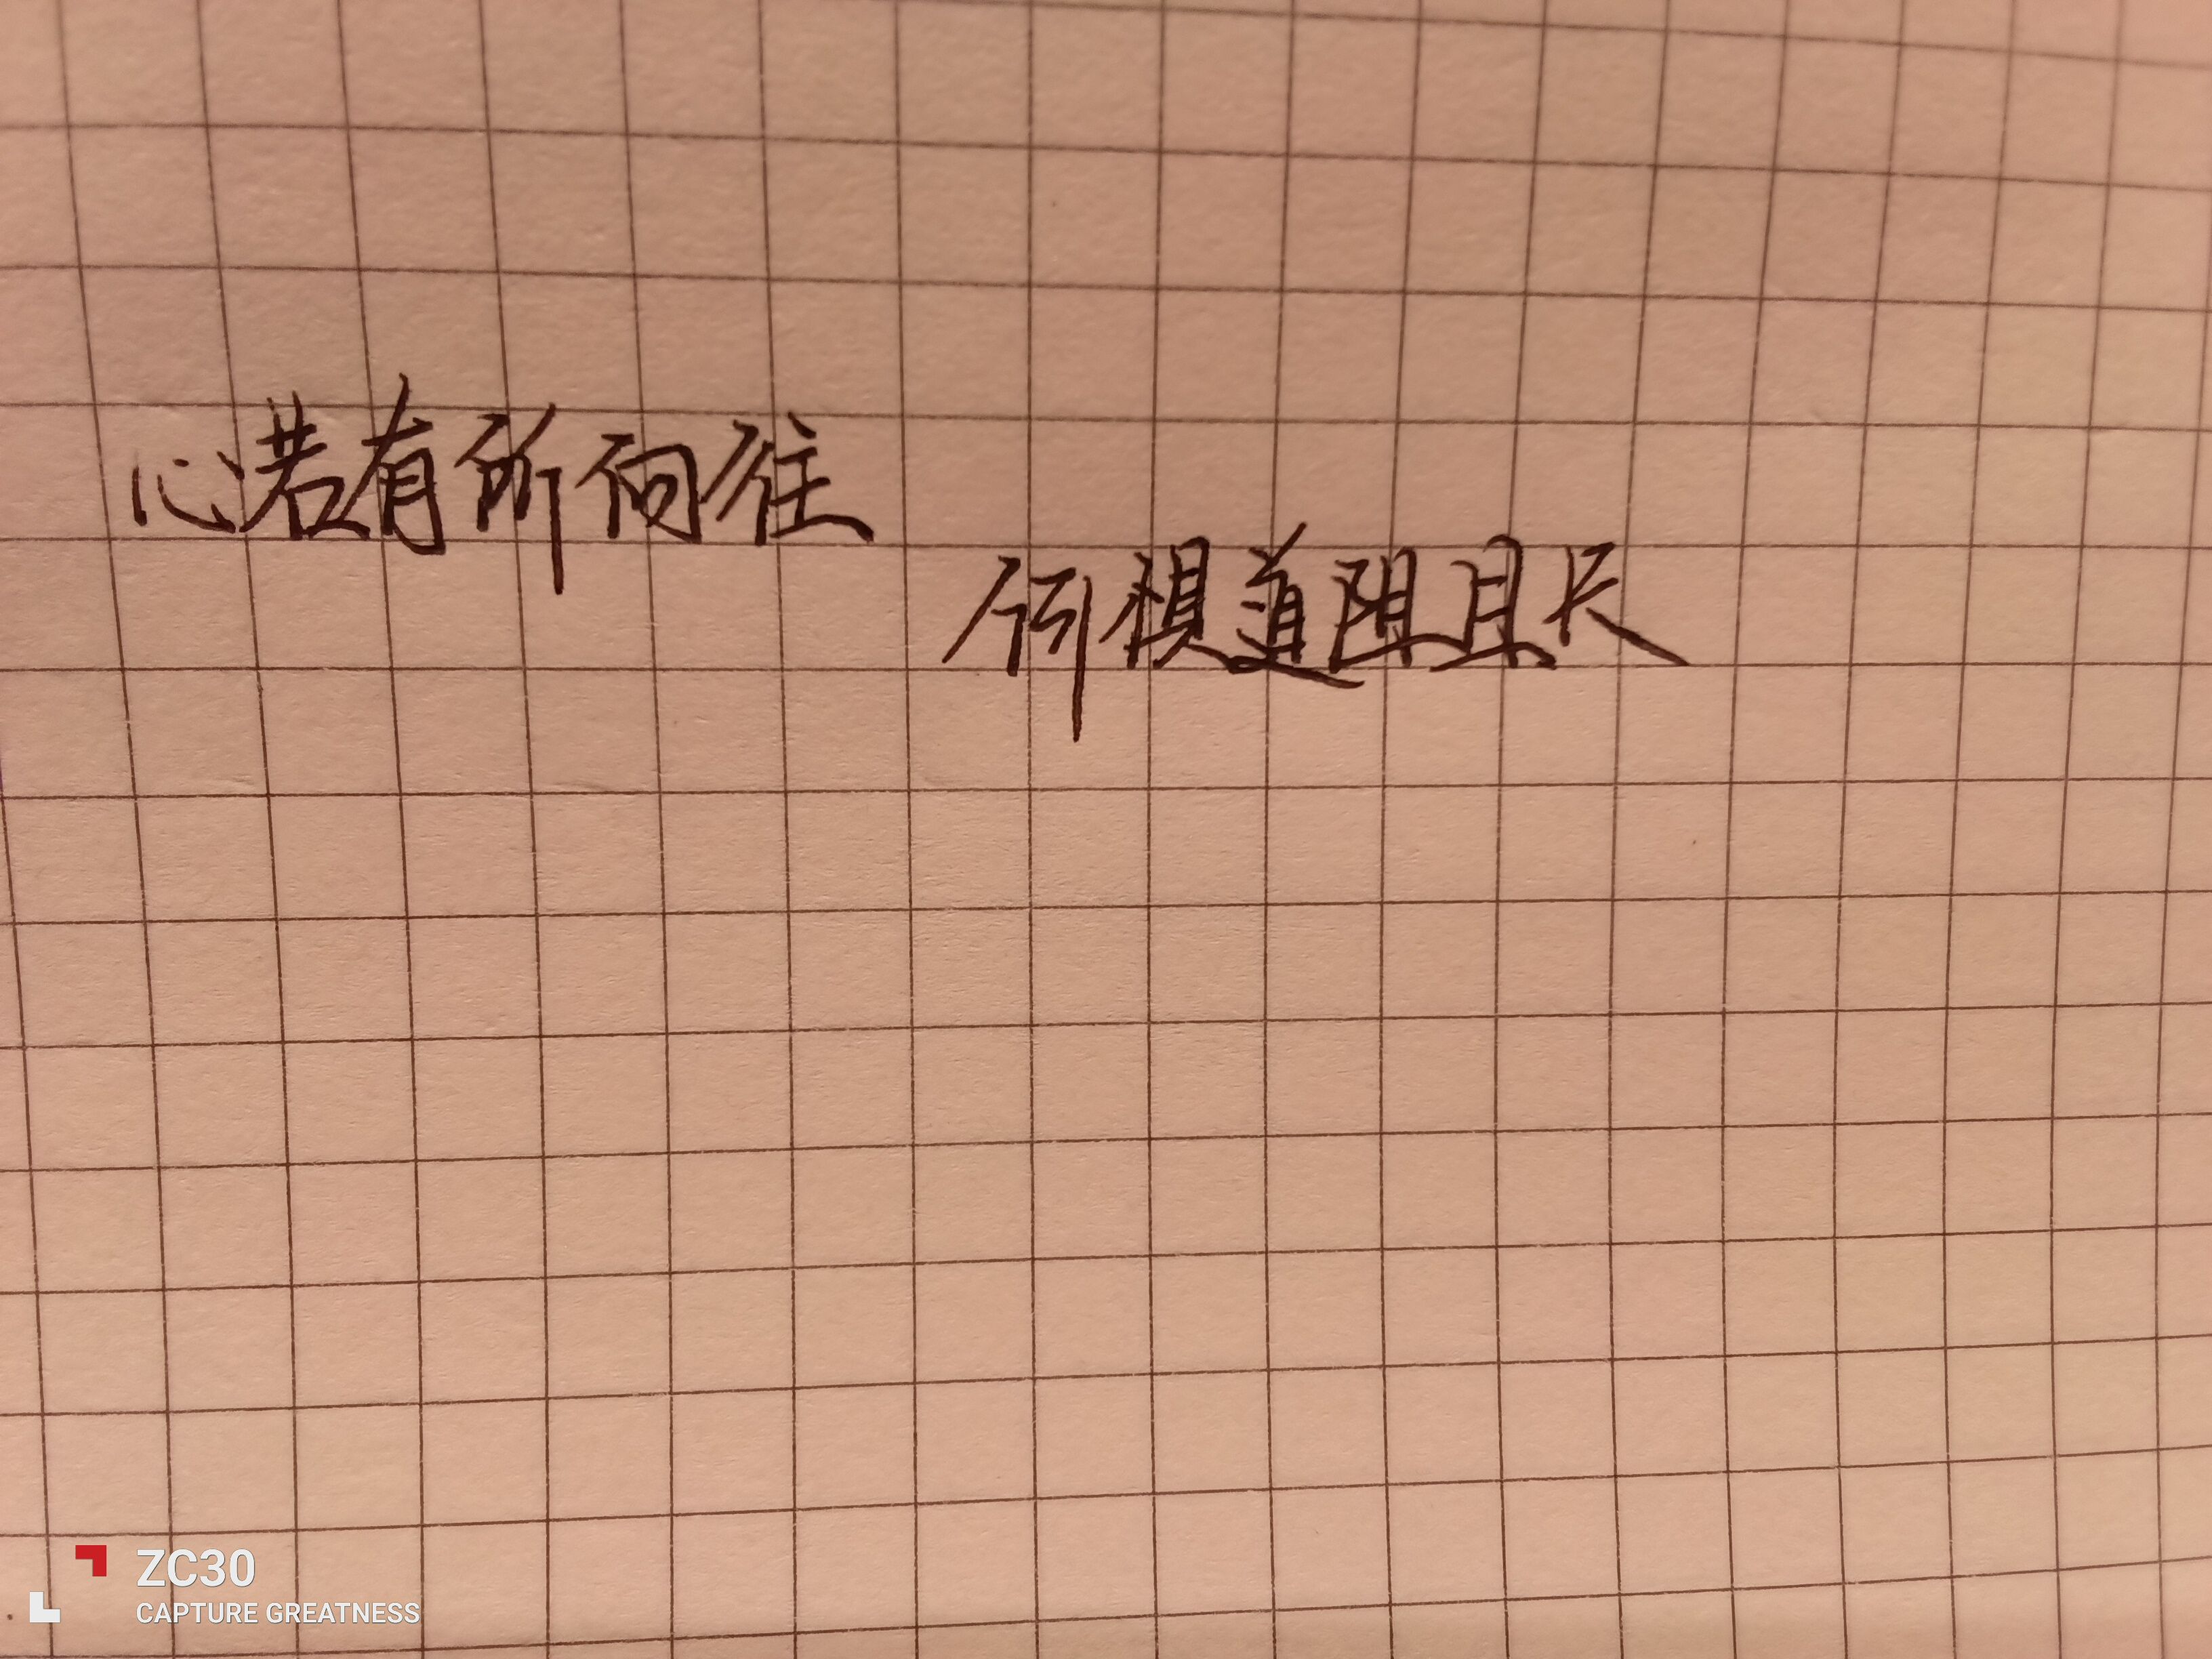 心若有所向往
何惧道阻且长
ZC30
CAPTURE GREATNESS